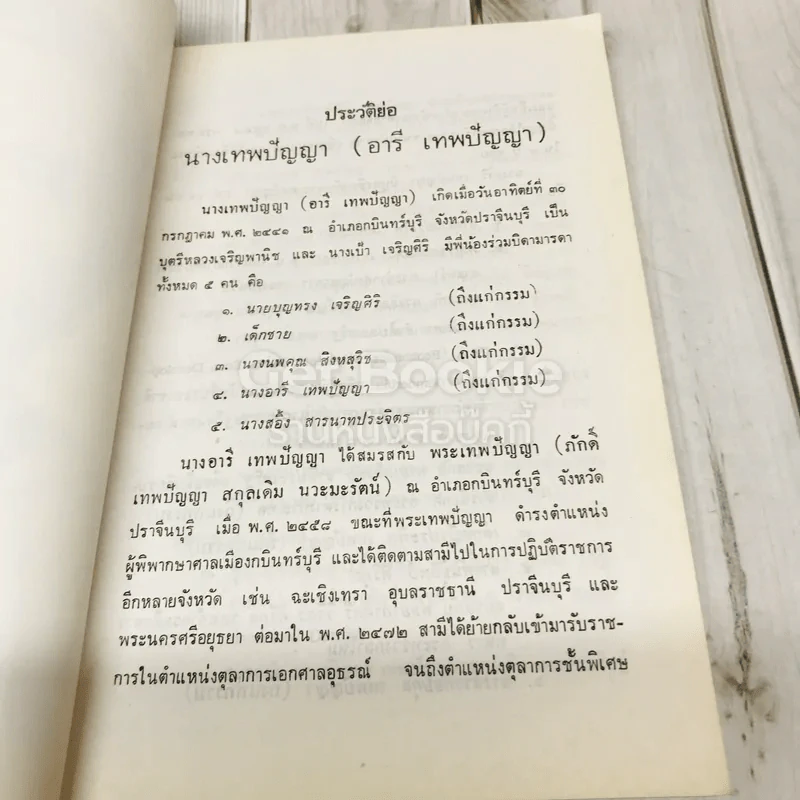 ประวัติย่อ
นางเทพปัญญา (อารี เทพปัญญา)
นางเทพปัญญา (อารี เทพปัญญา) เกิดเมื่อวันอาทิตย์ที่ ๓๐
กรกฎาคม พ.ศ. ๒๔๔๑ ณ อำเภอกบินทร์บุรี จังหวัดปราจีนบุรี เป็น
บุตรีหลวงเจริญพานิช และ นางเป้า เจริญศิริ มีพี่น้องร่วมบิดามารดา
ทั้งหมด ๕ คน คือ
๑. นายบุญทรง เจริญศิริ (ถึงแก่กรรม)
๒. เด็กชาย (ถึงแก่กรรม)
๓. นางนพคุณ สิงหสุวิช (ถึงแก่กรรม)
๔. นางอารี เทพปัญญา (ถึงแก่กรรม)
๕. นางสอิ้ง สารนาทประจิตร
Get Bookie
ร้านหนังสือบุคกี้
นางอารี เทพปัญญา ได้สมรสกับ พระเทพปัญญา (ภักดิ์
เทพปัญญา สกุลเดิม นวะมะรัตน์) ณ อำเภอกบินทร์บุรี จังหวัด
ปราจีนบุรี เมื่อ พ.ศ. ๒๔๕๘ ขณะที่พระเทพปัญญา ดำรงตำแหน่ง
ผู้พิพากษาศาลเมืองกบินทร์บุรี และได้ติดตามสามีไปในการปฏิบัติราชการ
อีกหลายจังหวัด เช่น ฉะเชิงเทรา อุบลราชธานี ปราจีนบุรี และ
พระนครศรีอยุธยา ต่อมาใน พ.ศ. ๒๔๗๒ สามีได้ย้ายกลับเข้ามารับราช-
การในตำแหน่งตุลาการเอกศาลอุธรณ์ จนถึงตำแหน่งตุลาการชั้นพิเศษ